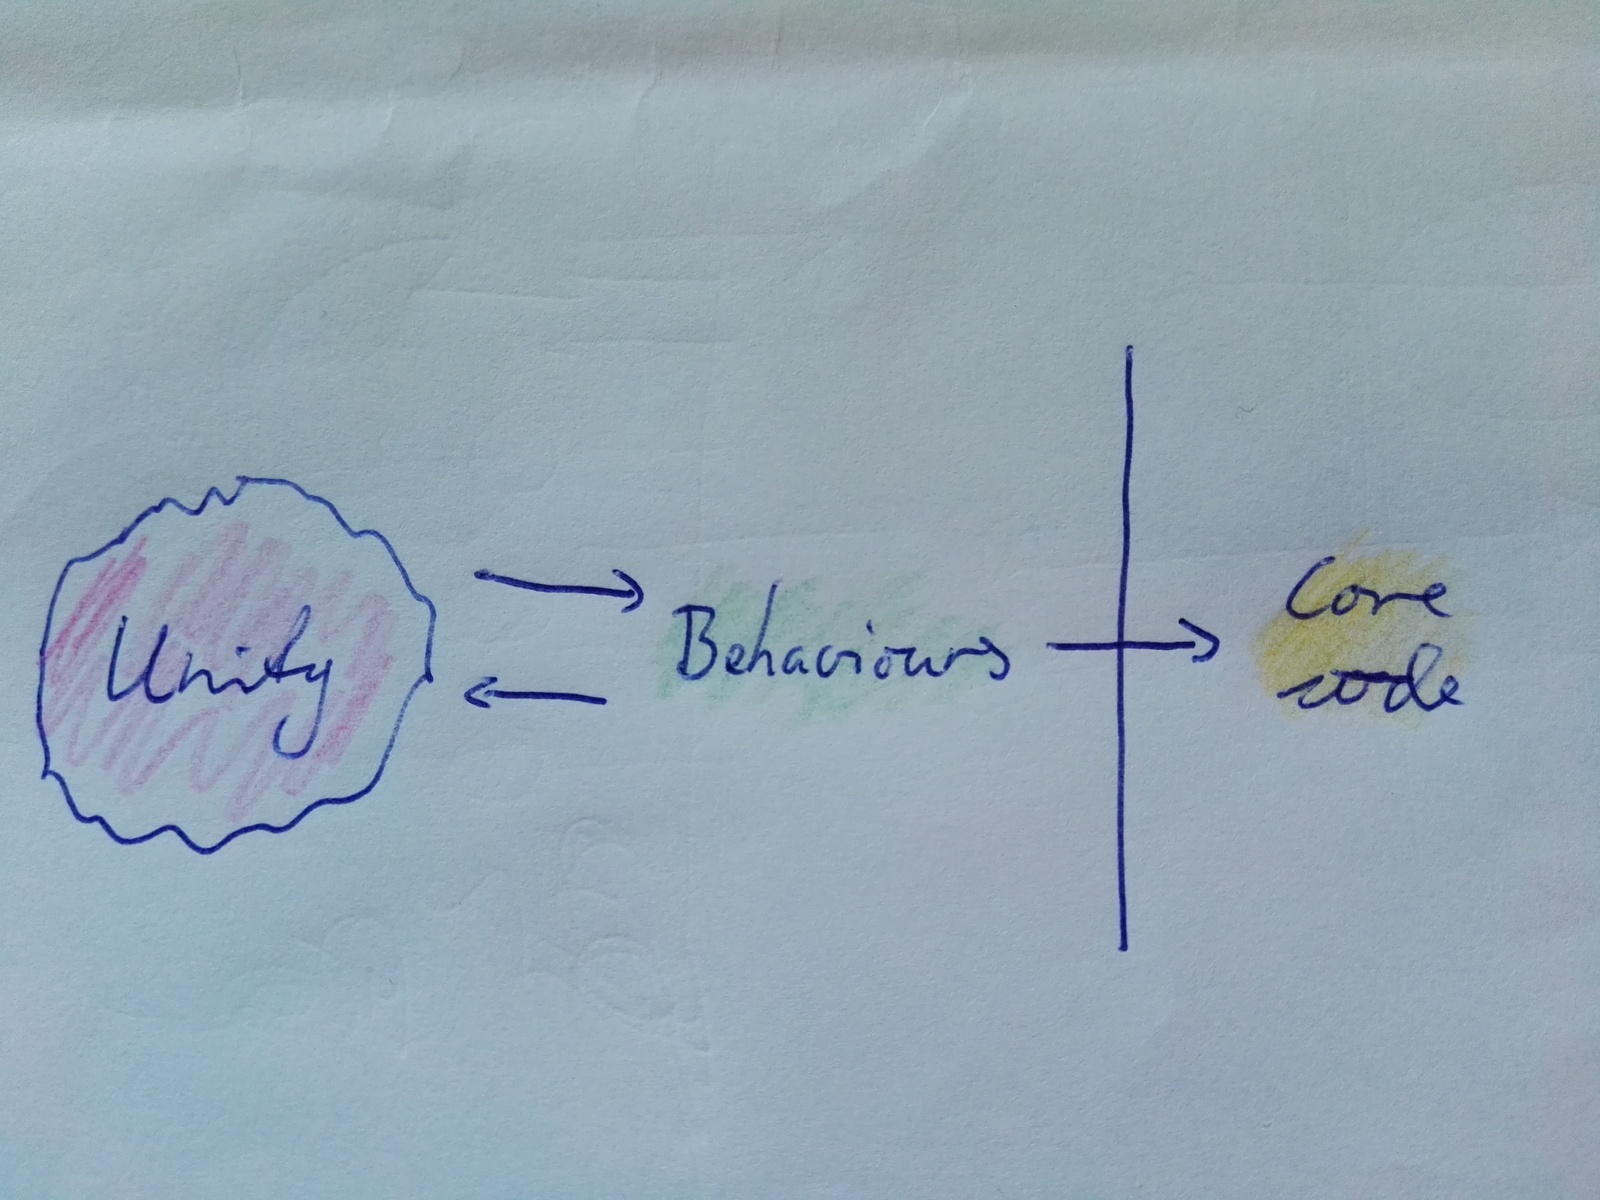 Unity
Behaviours
Core
code